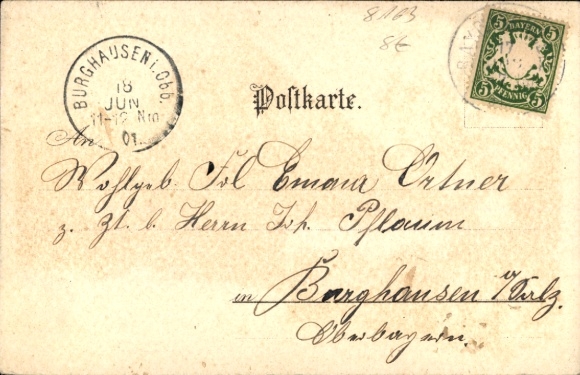 8163
8€
BAYERN
5 5
PFENNIG
5 5
BURGHAUSEN i. Obb.
18
JUN
11-12 Nm
01.
Postkarte.
An
Wohlgeb. Frl Emma Ortner
z. Zt. b. Herrn Joh. Pflaum
in Burghausen a/Salz.
Oberbayern.